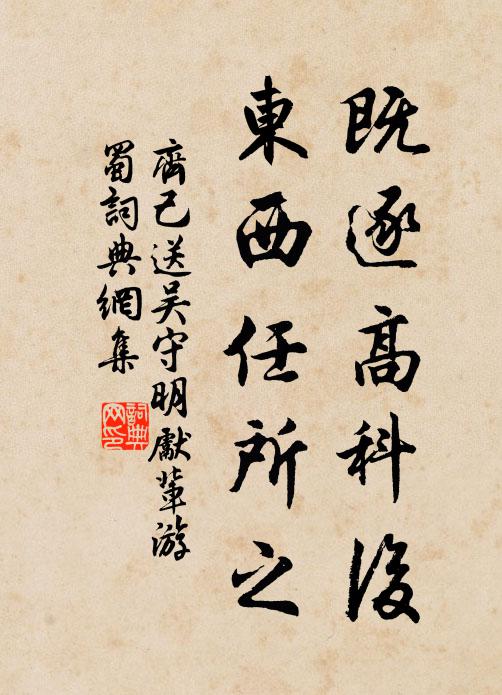 既逐高科後
東西任所之
齊己送吴守明獻輩游
蜀詞典網集
詞典网印